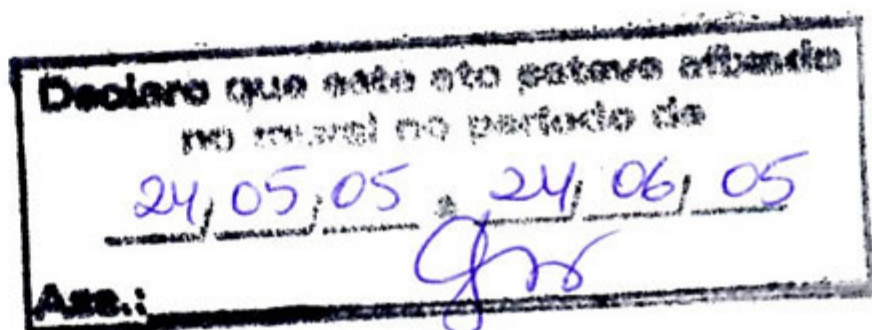 Declaro que este ato esteve afixado
no mural no período de
24/05/05 a 24/06/05
Ass.: